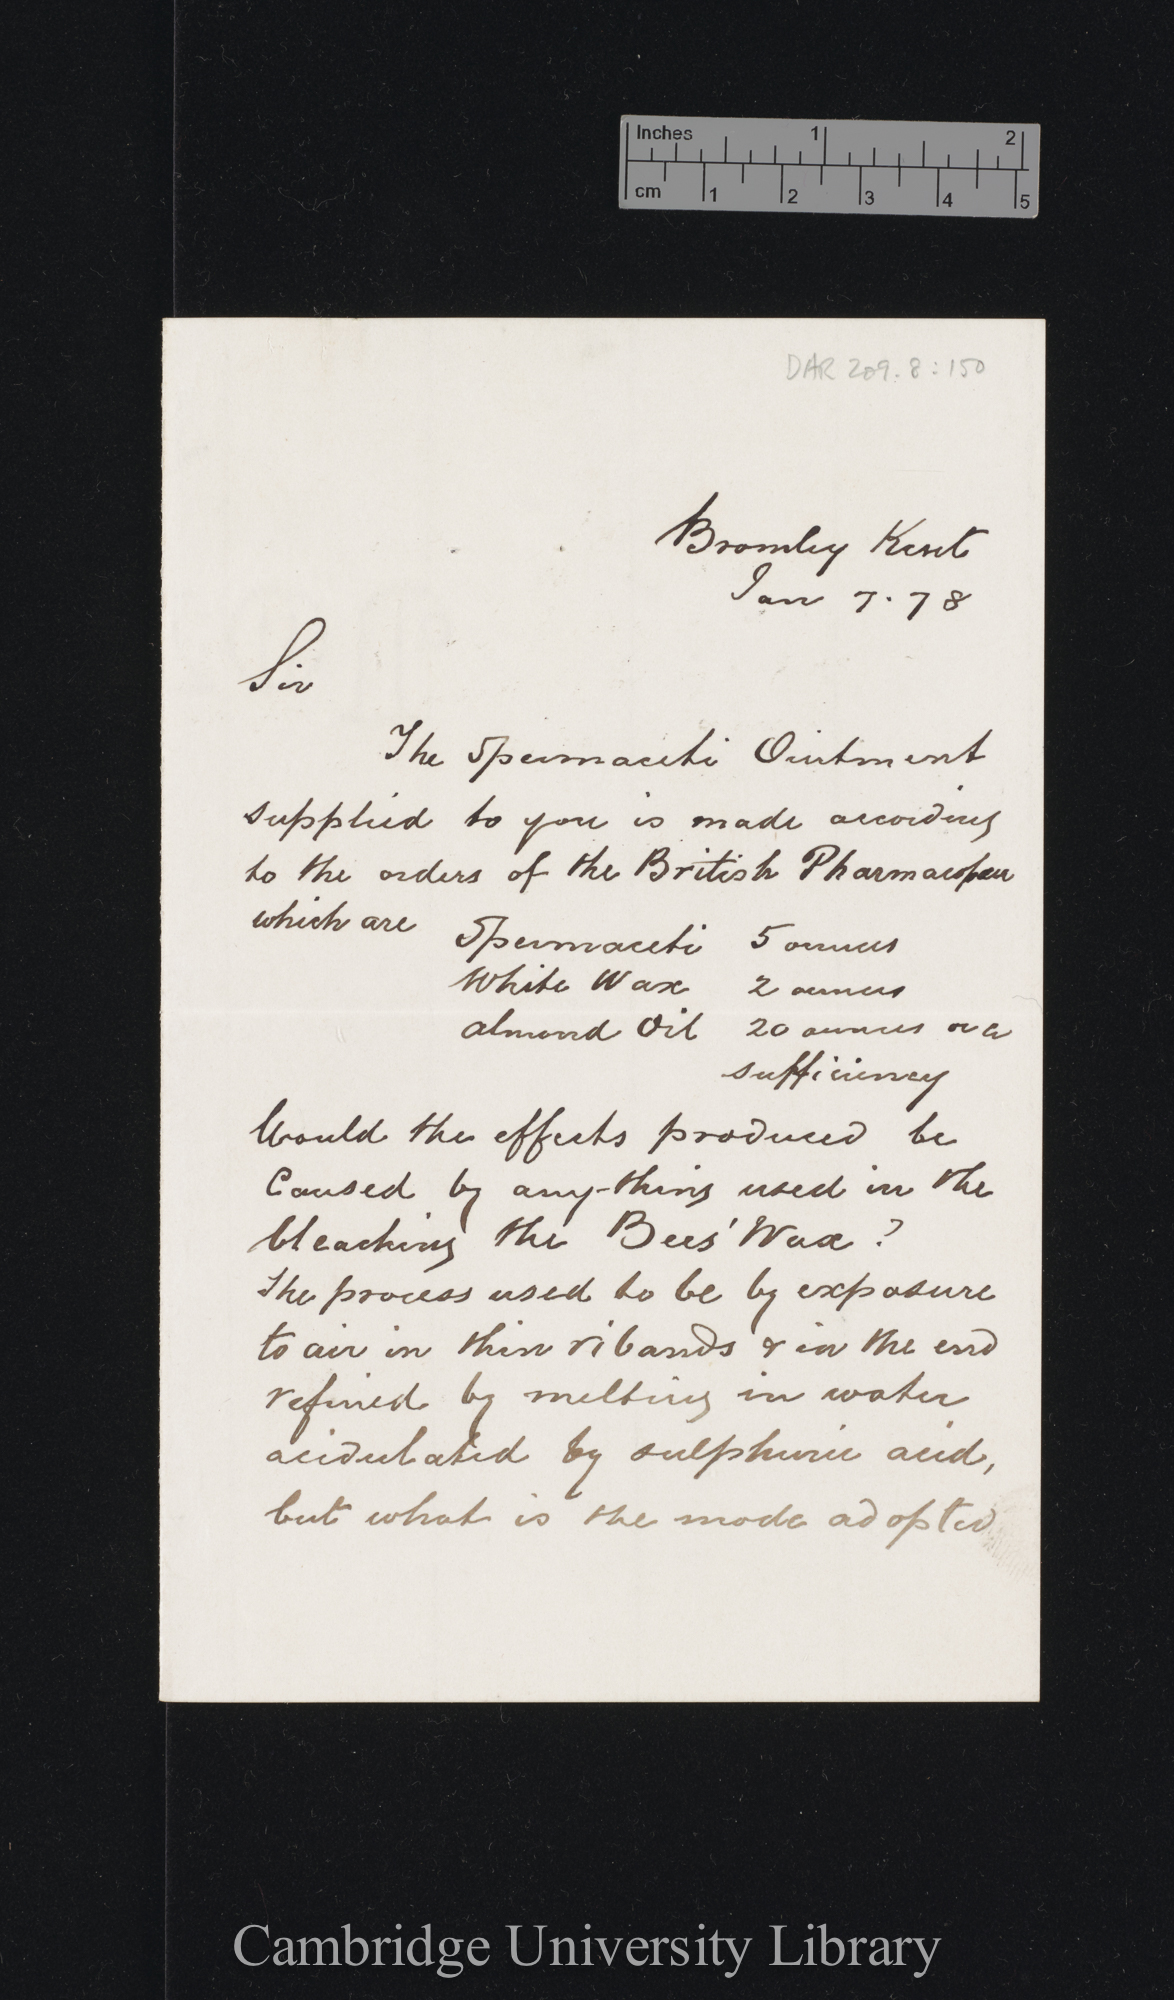 Inches 1 2
cm 1 2 3 4 5
DAR 209.8:150
Bromley Kent
Jan 7. 78
Sir
The Spermaceti Ointment
supplied to you is made according
to the orders of the British Pharmacopœia
which are
Spermaceti 5 ounces
White Wax 2 ounces
Almond Oil 20 ounces or a
sufficiency
Would the effects produced be
Caused by any-thing used in the
bleaching the Bees' Wax?
The process used to be by exposure
to air in thin ribands & in the end
refined by melting in water
acidulated by sulphuric acid,
but what is the mode adopted
Cambridge University Library